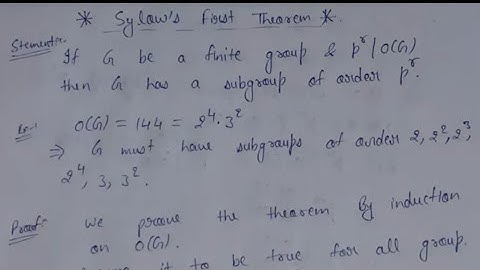 * Sylow's First Theorem *.
Stement:- If G be a finite group & p^r | O(G)
then G has a subgroup of order p^r.
Ex-1 O(G) = 144 = 2^4. 3^2
⇒ G must have subgroups of order 2, 2^2, 2^3,
2^4, 3, 3^2.
Proof:- We prove the theorem By induction
on O(G).
it to be true for all group.